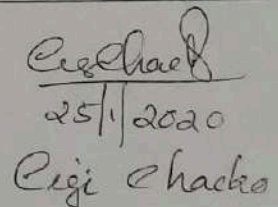 25/1/2020
Cigi Chacko